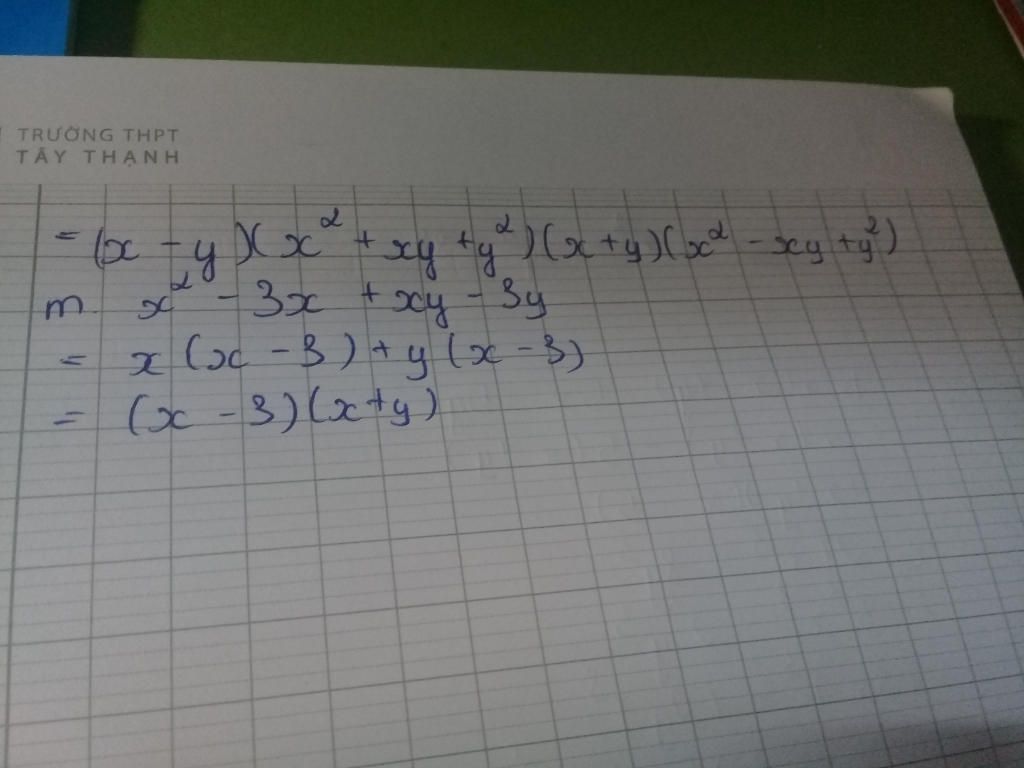 TRƯỜNG THPT
TÂY THẠNH
= (x - y)(x² + xy + y²)(x + y)(x² - xy + y²)
m. x² - 3x + xy - 3y
= x (x - 3) + y (x - 3)
= (x - 3)(x + y)